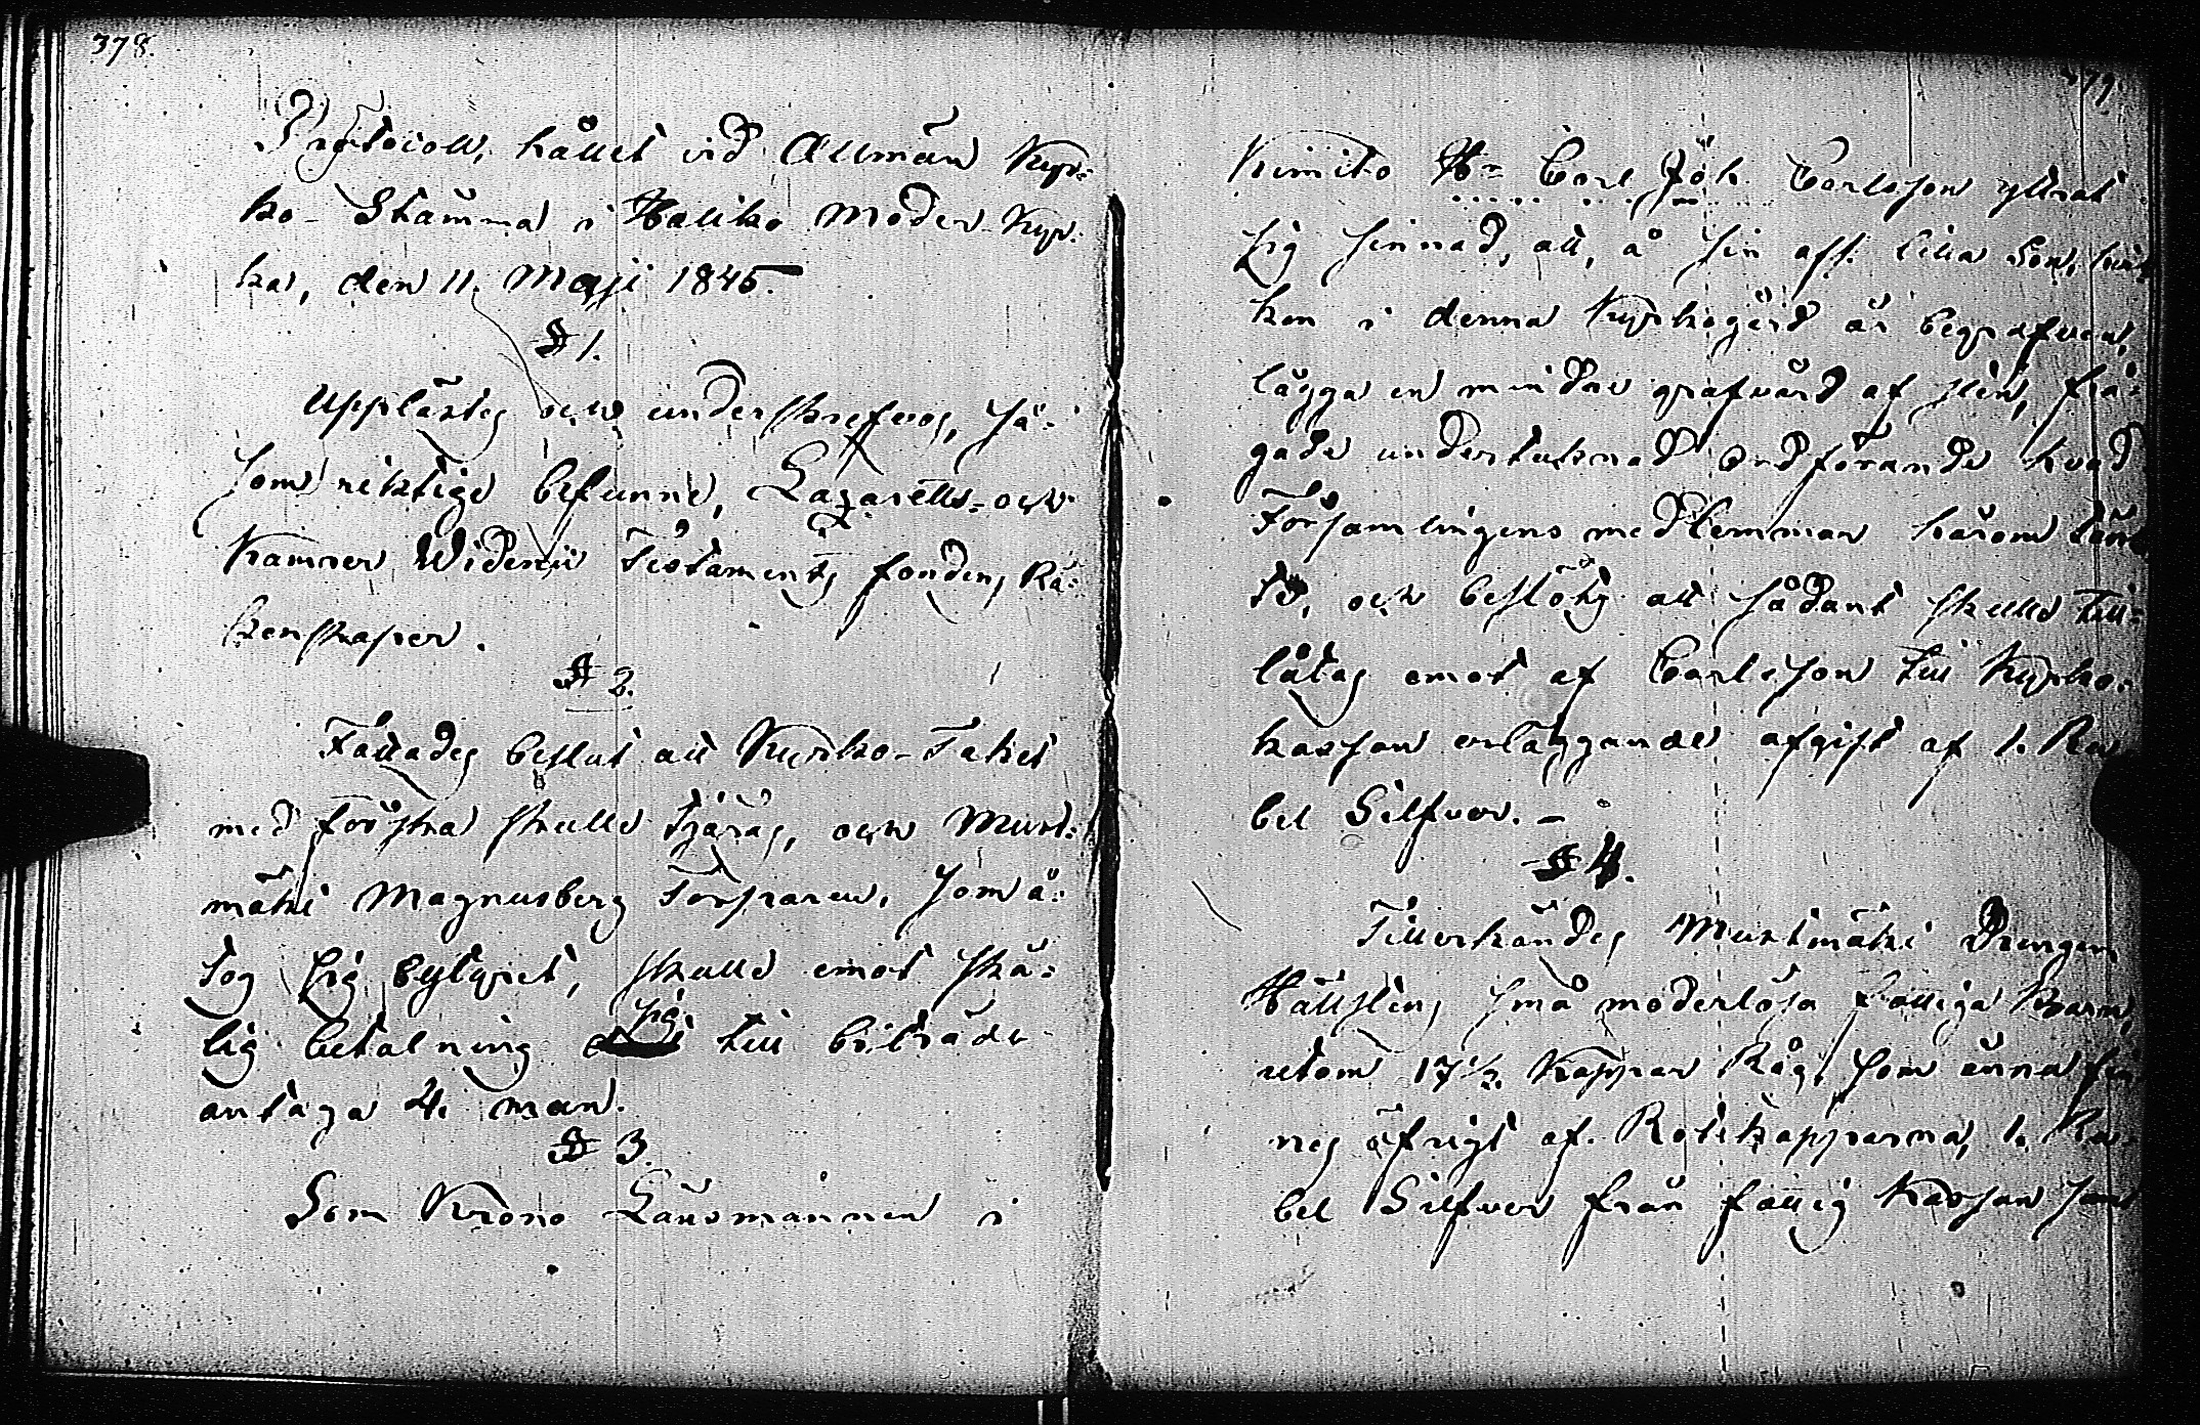 378.
Protocoll, hållet vid Allmän Kyr-
ko-Stämma i Haliko Moder-Kyr-
ka, den 11. Maji 1845.
§ 1.
Upplästes och underskrefvos, så-
som riktige befunne, Lazaretts- och
Kamrer Widenii Testaments fondens Rä-
kenskaper.
§ 2.
Fattades beslut att Kyrko-Taket
med första skulle tjäras, och Murt-
mäki Magnusberg Torparen, som å-
tog sig bestyret, skulle emot skä-
lig betalning sig till biträde
antaga 4. man.
§ 3.
Som Krono Länsmannen i
379.
Kimito Hr. Carl Joh. Carlsson yttrat
sig sinnad, att, å sin afl. lilla Son, hvil-
ken i denna Kyrkogård är begrafven,
lägga en mindre grafvård af sten, frå-
gade undertecknad Ordförande hvad
Församlingens medlemmar härom tänk-
te, och beslöts att sådant skulle till-
låtas emot af Carlsson till Kyrko-
kassan erläggande afgift af 1. Ru
bel Silfver. -
§ 4.
Tillerkändes Murtmäki Drengen
Hällstens små moderlösa fattiga Barn,
utom 17 1/2 Kappar Råg, som ännu fin
nes öfrigt af Rotekapparna, 1. Ru-
bel Silfver från fattig Kassan samt